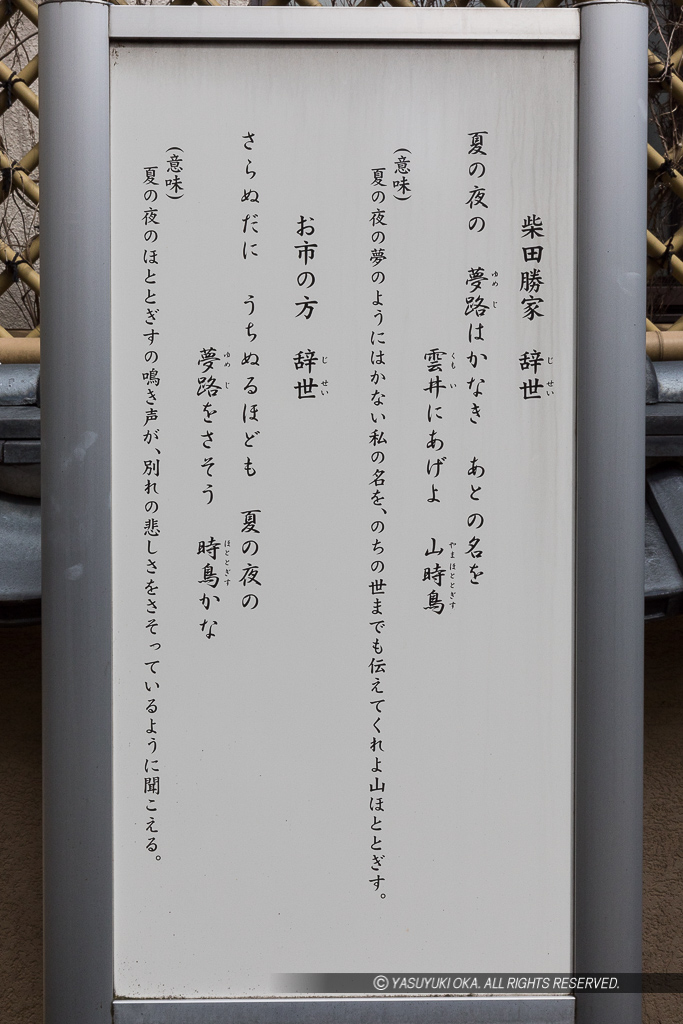 柴田勝家　辞世
じ　せい
夏の夜の　夢路はかなき　あとの名を
ゆめ　じ
雲井にあげよ　山時鳥
くも　い　やまほととぎす
(意味)
夏の夜の夢のようにはかない私の名を、のちの世までも伝えてくれよ山ほととぎす。
お市の方　辞世
じ　せい
さらぬだに　うちぬるほども　夏の夜の
夢路をさそう　時鳥かな
ゆめ　じ　ほととぎす
(意味)
夏の夜のほととぎすの鳴き声が、別れの悲しさをさそっているように聞こえる。
© YASUYUKI OKA. ALL RIGHTS RESERVED.